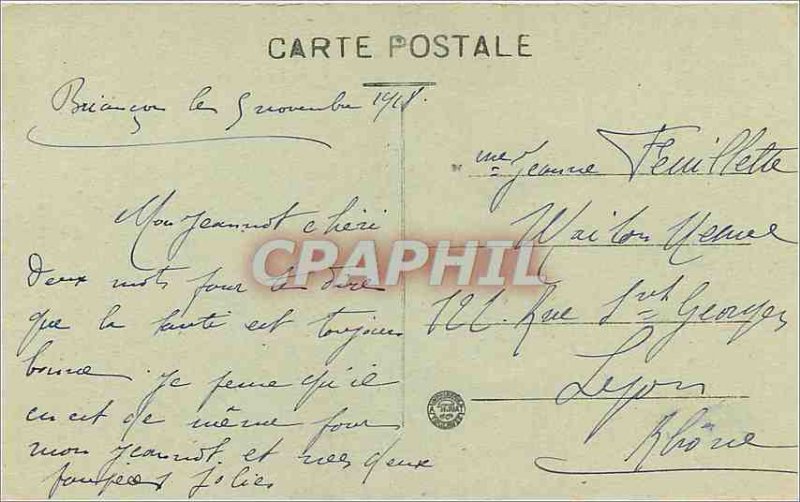 CARTE POSTALE
Briançon le 5 novembre 1918.
Mon Jeannot chéri
deux mots pour te dire
que la santé est toujours
bonne. Je pense qu'il
en est de même pour
mon Jeannot et mes deux
jolies
Jeanne Feuillette
121. Rue St Georges
Lyon
Rhône
CPAPHIL